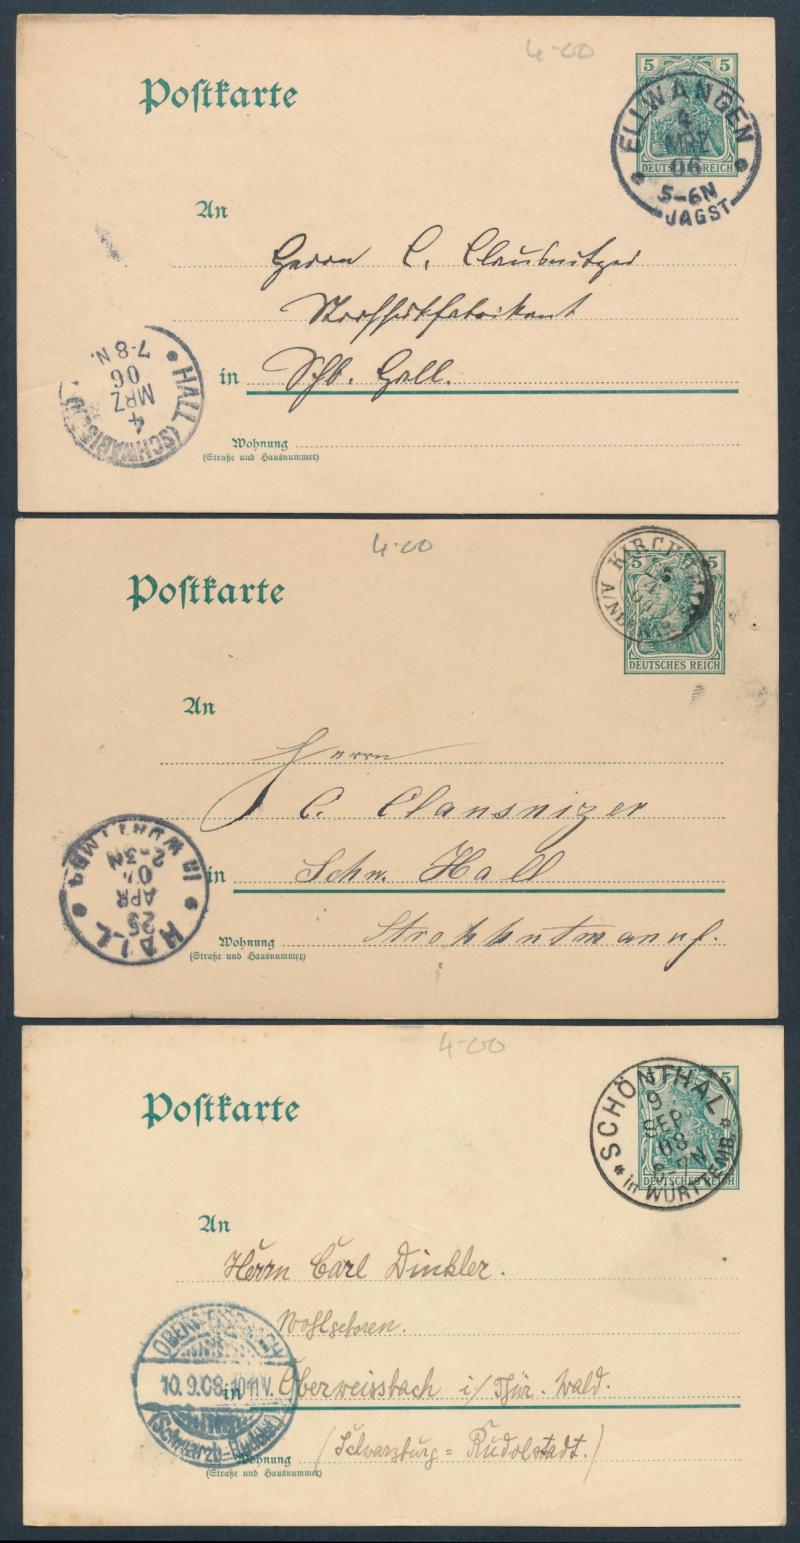 4-00
Postkarte
5 5
DEUTSCHES REICH
ELLWANGEN
4
MRZ
06
5-6N
JAGST
An
Herrn C. Claußnitzer
Strohhutfabrikant
in Schw. Hall.
HALL (SCHWÄBISCH)
4
MRZ
06
7-8N.
Wohnung
(Straße und Hausnummer)
4-00
Postkarte
5 5
DEUTSCHES REICH
KIRCHHEIM
A/N
An
Herrn
C. Clausnizer
in Schw. Hall
Wohnung Strohhutmanuf.
(Straße und Hausnummer)
HALL
25
APR
2-3N
IN WÜRTTEMBG
4-00
Postkarte
5
DEUTSCHES REICH
SCHÖNTHAL
9
SEP
08
6-7N
in WÜRTTEMB.
An
Herrn Carl Dinkler.
Wohlgeboren.
in Oberweissbach i/Thür. Wald.
(Schwarzburg=Rudolstadt.)
Wohnung
(Straße und Hausnummer)
OBERWEISSBACH
10.9.08. 10-11V.
(Schwarzb.-Rudolst.)